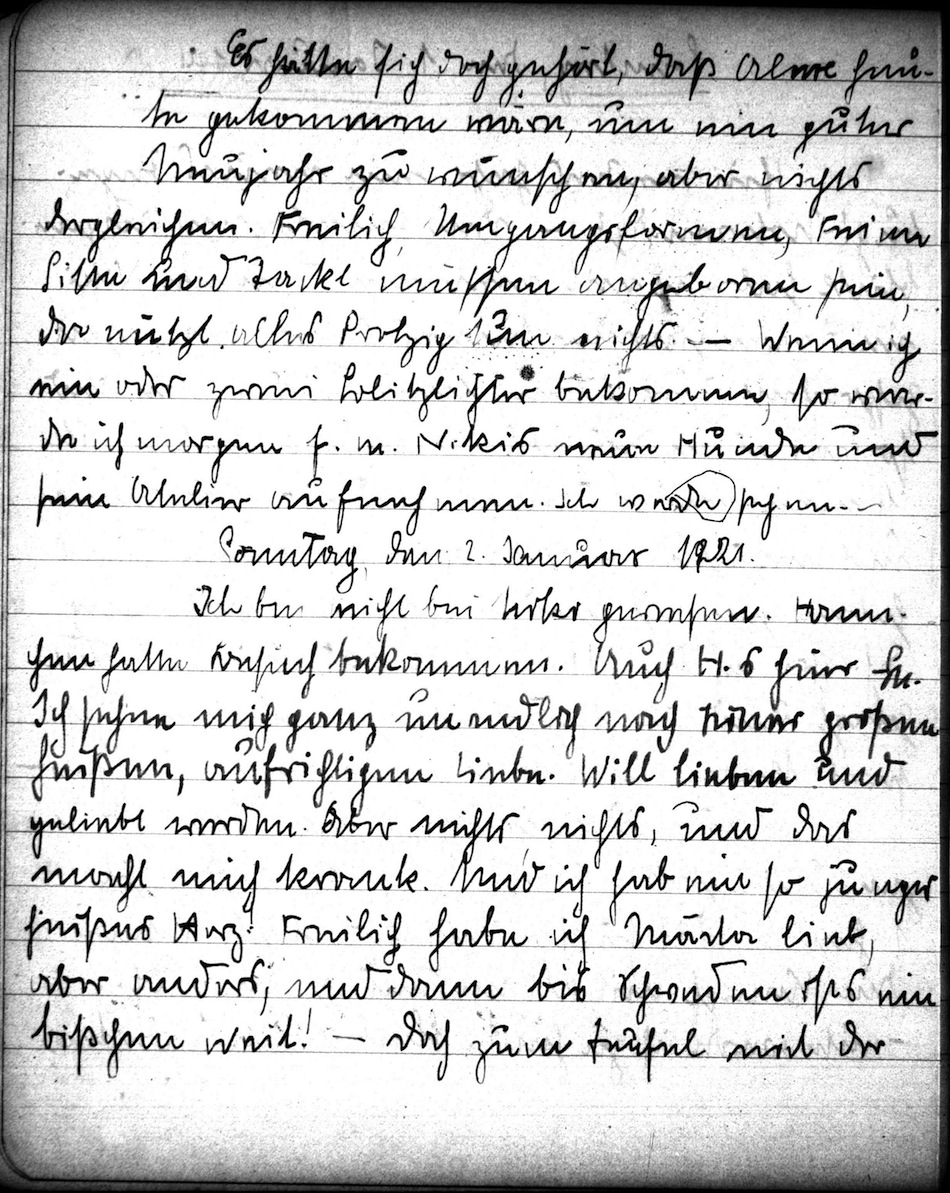 Es hätte sich doch gehört, daß Alexe heu-
te gekommen wäre, um ein gutes
Neujahr zu wünschen, aber nichts
dergleichen. Freilich, Umgangsformen, Feine
Sitte und Tackt müssen angeboren sein,
da nützt alles Protzig tun nichts. — Wenn ich
ein oder zwei Blitzlichter bekomme, so wer-
de ich morgen f. m. Nikis neue Hunde und
sein Atelier aufnehmen. Ich werde sehen. -
Sonntag, den 2. Januar 1921.
Ich bin nicht bei Niki gewesen. Hann-
chen hatte Besuch bekommen. Auch H.s hier
Ich sehne mich ganz unendlich nach einer großen
heißen, aufrichtigen Liebe. Will lieben und
geliebt werden. Aber nichts, nichts, und das
macht mich krank. Und ich hab ein so junges
heißes Herz! Freilich habe ich Märta lieb,
aber anders, und dann bis Schweden ists ein
bißchen weit! — Doch zum Teufel mit der